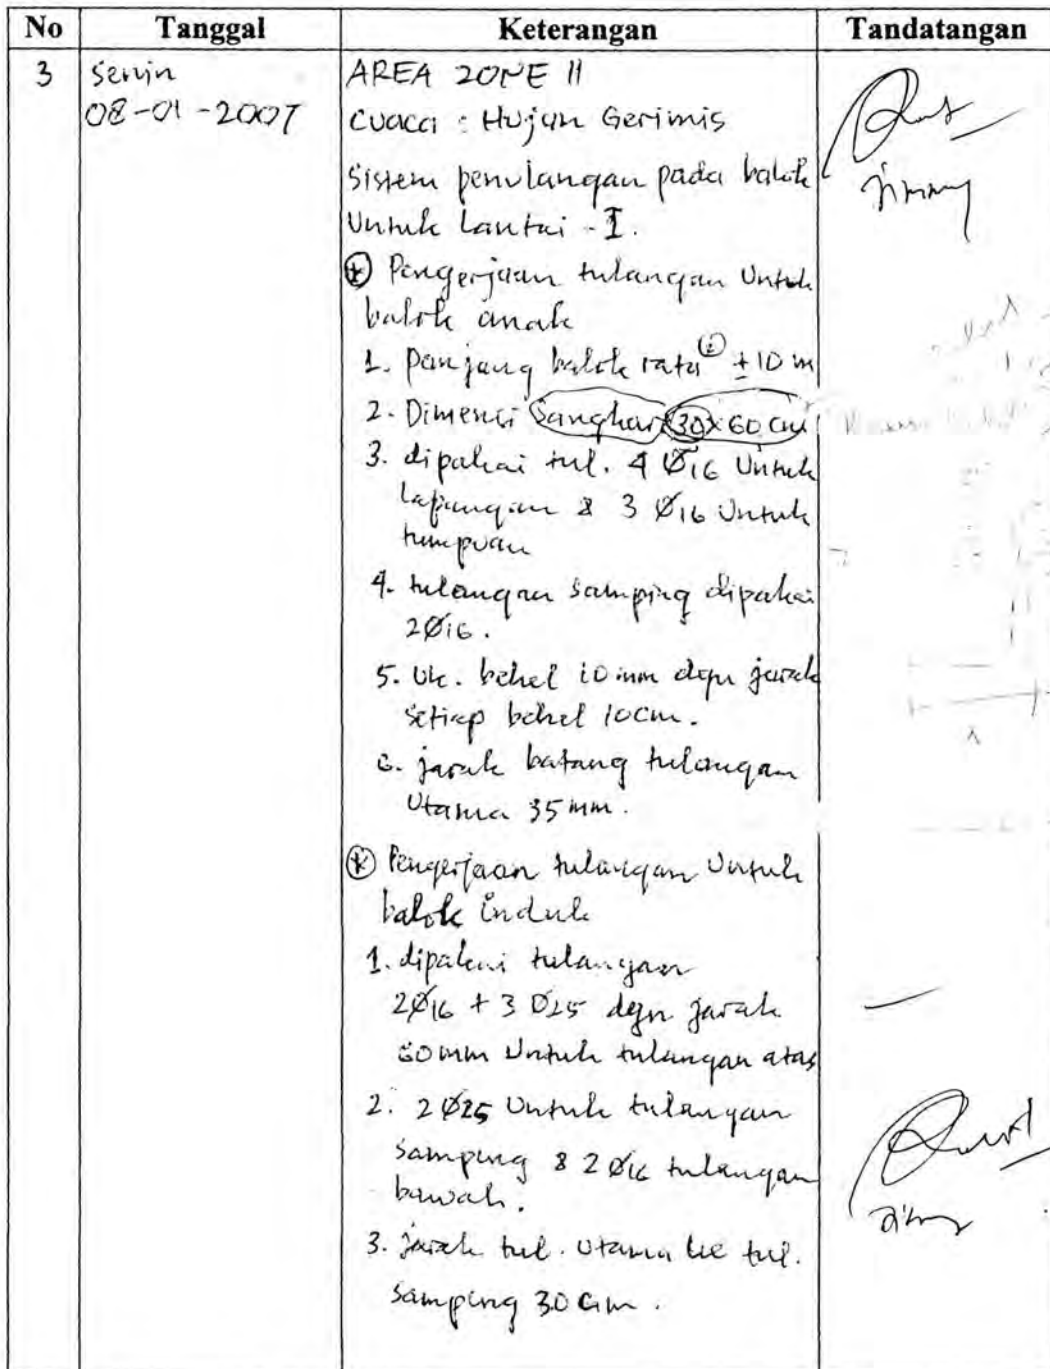 No Tanggal Keterangan Tandatangan
3 Senin AREA ZONE II
08-01-2007 Cuaca : Hujan Gerimis
Sistem penulangan pada balok
Untuk Lantai - I.
Jimmy
* Pengerjaan tulangan Untuk
balok anak
1. panjang balok rata² ± 10 m
2. Dimensi 30 x 60 cm
3. dipakai tul. 4 Ø16 Untuk
Lapangan & 3 Ø16 Untuk
tumpuan
4. tulangan samping dipakai
2Ø16.
5. Uk. behel 10 mm dgn jarak
setiap behel 10cm.
6. jarak batang tulangan
Utama 35 mm.
* Pengerjaan tulangan Untuk
balok induk
1. dipakai tulangan
2Ø16 + 3 D25 dgn jarak
mm Untuk tulangan atas
2. 2Ø25 Untuk tulangan
samping & 2Ø16 tulangan
bawah.
3. jarak tul. Utama ke tul.
samping 30 cm.